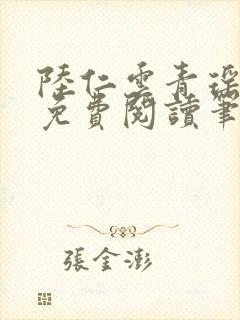 陸仁雲青瑶
免費閱讀筆
張金澎